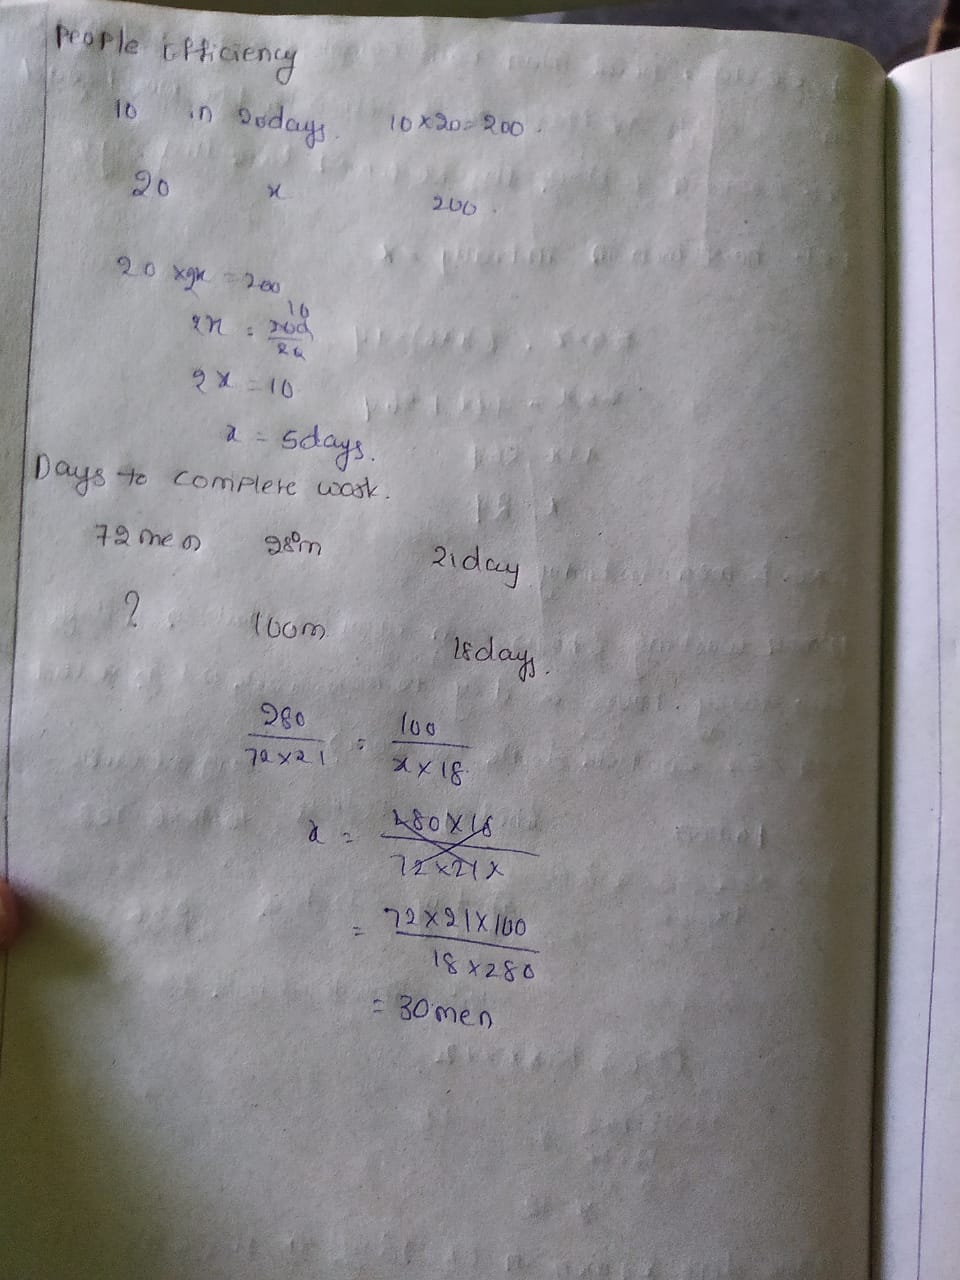 People Efficiency
10 in 20days. 10×20=200.
20 x 200.
20 ×2x = 200
2x = 200/20 10
2x = 10
x = 5days.
Days to complete work.
72men 280m 21day
? 100m 18days.
280/72×21 = 100/x×18
x = 280×18/72×21×
= 72×21×100/18×280
= 30men